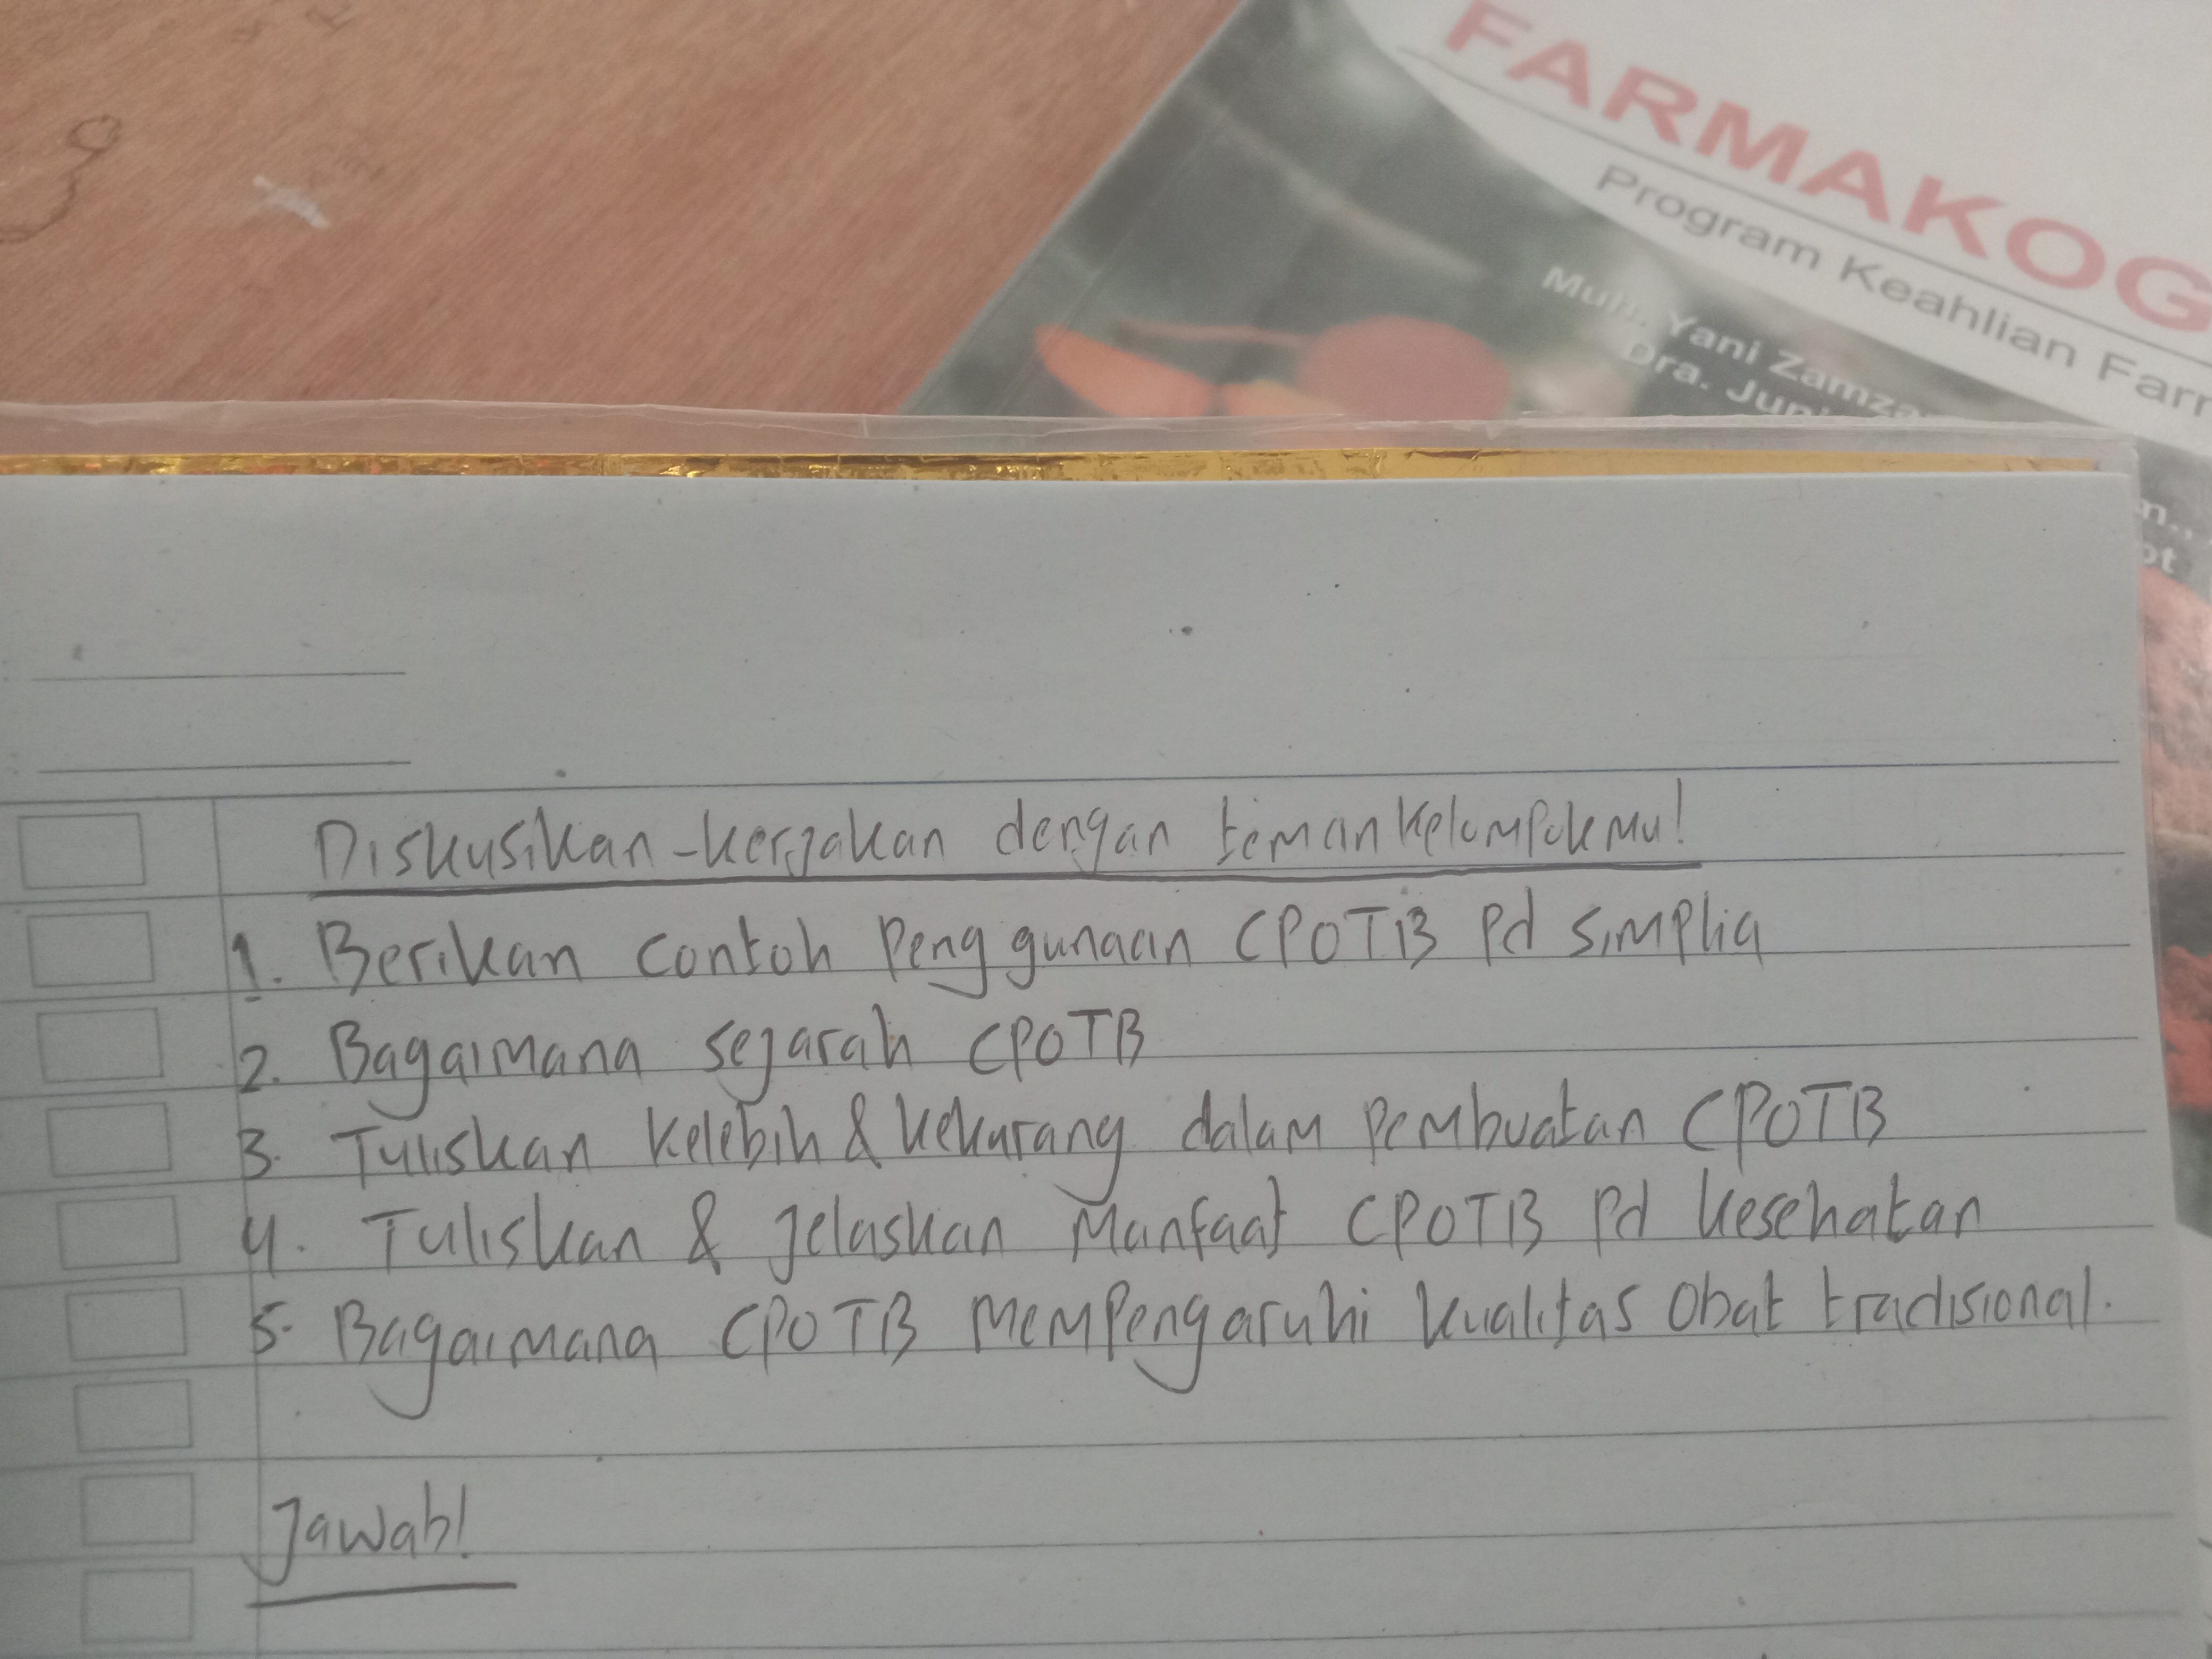 FARMAKOG
Program Keahlian Farm
Muh. Yani Zamza
Dra. Juni
n.,
pt
Diskusikan-kerjakan dengan teman kelompokmu!
1. Berikan contoh Penggunaan CPOTB Pd simplia
2. Bagaimana sejarah CPOTB
3. Tuliskan kelebih & kekurang dalam pembuatan CPOTB
4. Tuliskan & Jelaskan Manfaat CPOTB Pd kesehatan
5. Bagaimana CPOTB mempengaruhi kualitas obat tradisional.
Jawab!